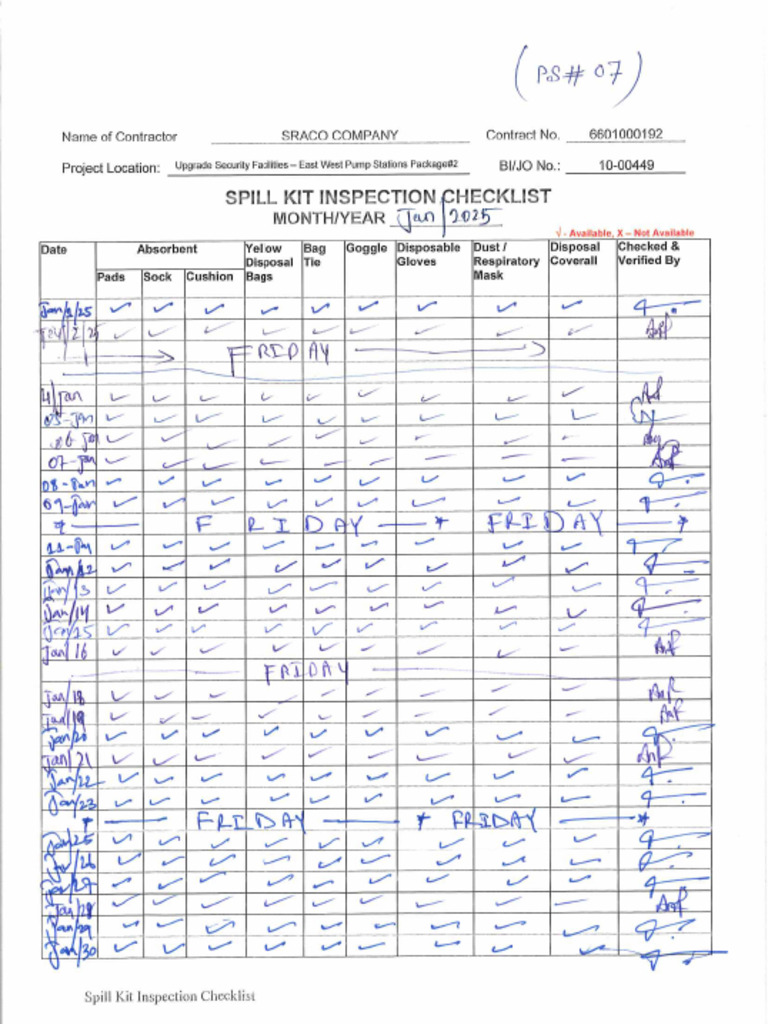 (PS# 07)
Name of Contractor SRACO COMPANY Contract No. 6601000192
Project Location: Upgrade Security Facilities – East West Pump Stations Package#2 BI/JO No.: 10-00449
SPILL KIT INSPECTION CHECKLIST
MONTH/YEAR Jan/2025
√ - Available, X – Not Available
Date Absorbent Yellow Disposal Bags Bag Tie Goggle Disposable Gloves Dust / Respiratory Mask Disposal Coverall Checked & Verified By
Pads Sock Cushion
Jan/1/25 ✓ ✓ ✓ ✓ ✓ ✓ ✓ ✓ ✓
2/25 ✓ ✓ ✓ ✓ ✓ ✓ ✓ ✓ ✓
FRIDAY
4/Jan ✓ ✓ ✓ ✓ ✓ ✓ ✓ ✓ ✓
05-Jan ✓ ✓ ✓ ✓ ✓ ✓ ✓ ✓ ✓
06-Jan ✓ ✓ ✓ ✓ ✓ ✓ ✓ ✓ ✓
07-Jan ✓ ✓ ✓ ✓ ✓ ✓ ✓ ✓ ✓
08-Jan ✓ ✓ ✓ ✓ ✓ ✓ ✓ ✓ ✓
09-Jan ✓ ✓ ✓ ✓ ✓ ✓ ✓ ✓ ✓
* FRIDAY * FRIDAY *
11-Jan ✓ ✓ ✓ ✓ ✓ ✓ ✓ ✓ ✓
Jan/12 ✓ ✓ ✓ ✓ ✓ ✓ ✓ ✓ ✓
Jan/13 ✓ ✓ ✓ ✓ ✓ ✓ ✓ ✓ ✓
Jan/14 ✓ ✓ ✓ ✓ ✓ ✓ ✓ ✓ ✓
Jan/15 ✓ ✓ ✓ ✓ ✓ ✓ ✓ ✓ ✓
Jan/16 ✓ ✓ ✓ ✓ ✓ ✓ ✓ ✓ ✓
FRIDAY
Jan/18 ✓ ✓ ✓ ✓ ✓ ✓ ✓ ✓ ✓
Jan/19 ✓ ✓ ✓ ✓ ✓ ✓ ✓ ✓ ✓
Jan/20 ✓ ✓ ✓ ✓ ✓ ✓ ✓ ✓ ✓
Jan/21 ✓ ✓ ✓ ✓ ✓ ✓ ✓ ✓ ✓
Jan/22 ✓ ✓ ✓ ✓ ✓ ✓ ✓ ✓ ✓
Jan/23 ✓ ✓ ✓ ✓ ✓ ✓ ✓ ✓ ✓
* FRIDAY * FRIDAY *
Jan/25 ✓ ✓ ✓ ✓ ✓ ✓ ✓ ✓ ✓
Jan/26 ✓ ✓ ✓ ✓ ✓ ✓ ✓ ✓ ✓
Jan/27 ✓ ✓ ✓ ✓ ✓ ✓ ✓ ✓ ✓
Jan/28 ✓ ✓ ✓ ✓ ✓ ✓ ✓ ✓ ✓
Jan/29 ✓ ✓ ✓ ✓ ✓ ✓ ✓ ✓ ✓
Jan/30 ✓ ✓ ✓ ✓ ✓ ✓ ✓ ✓ ✓
Spill Kit Inspection Checklist